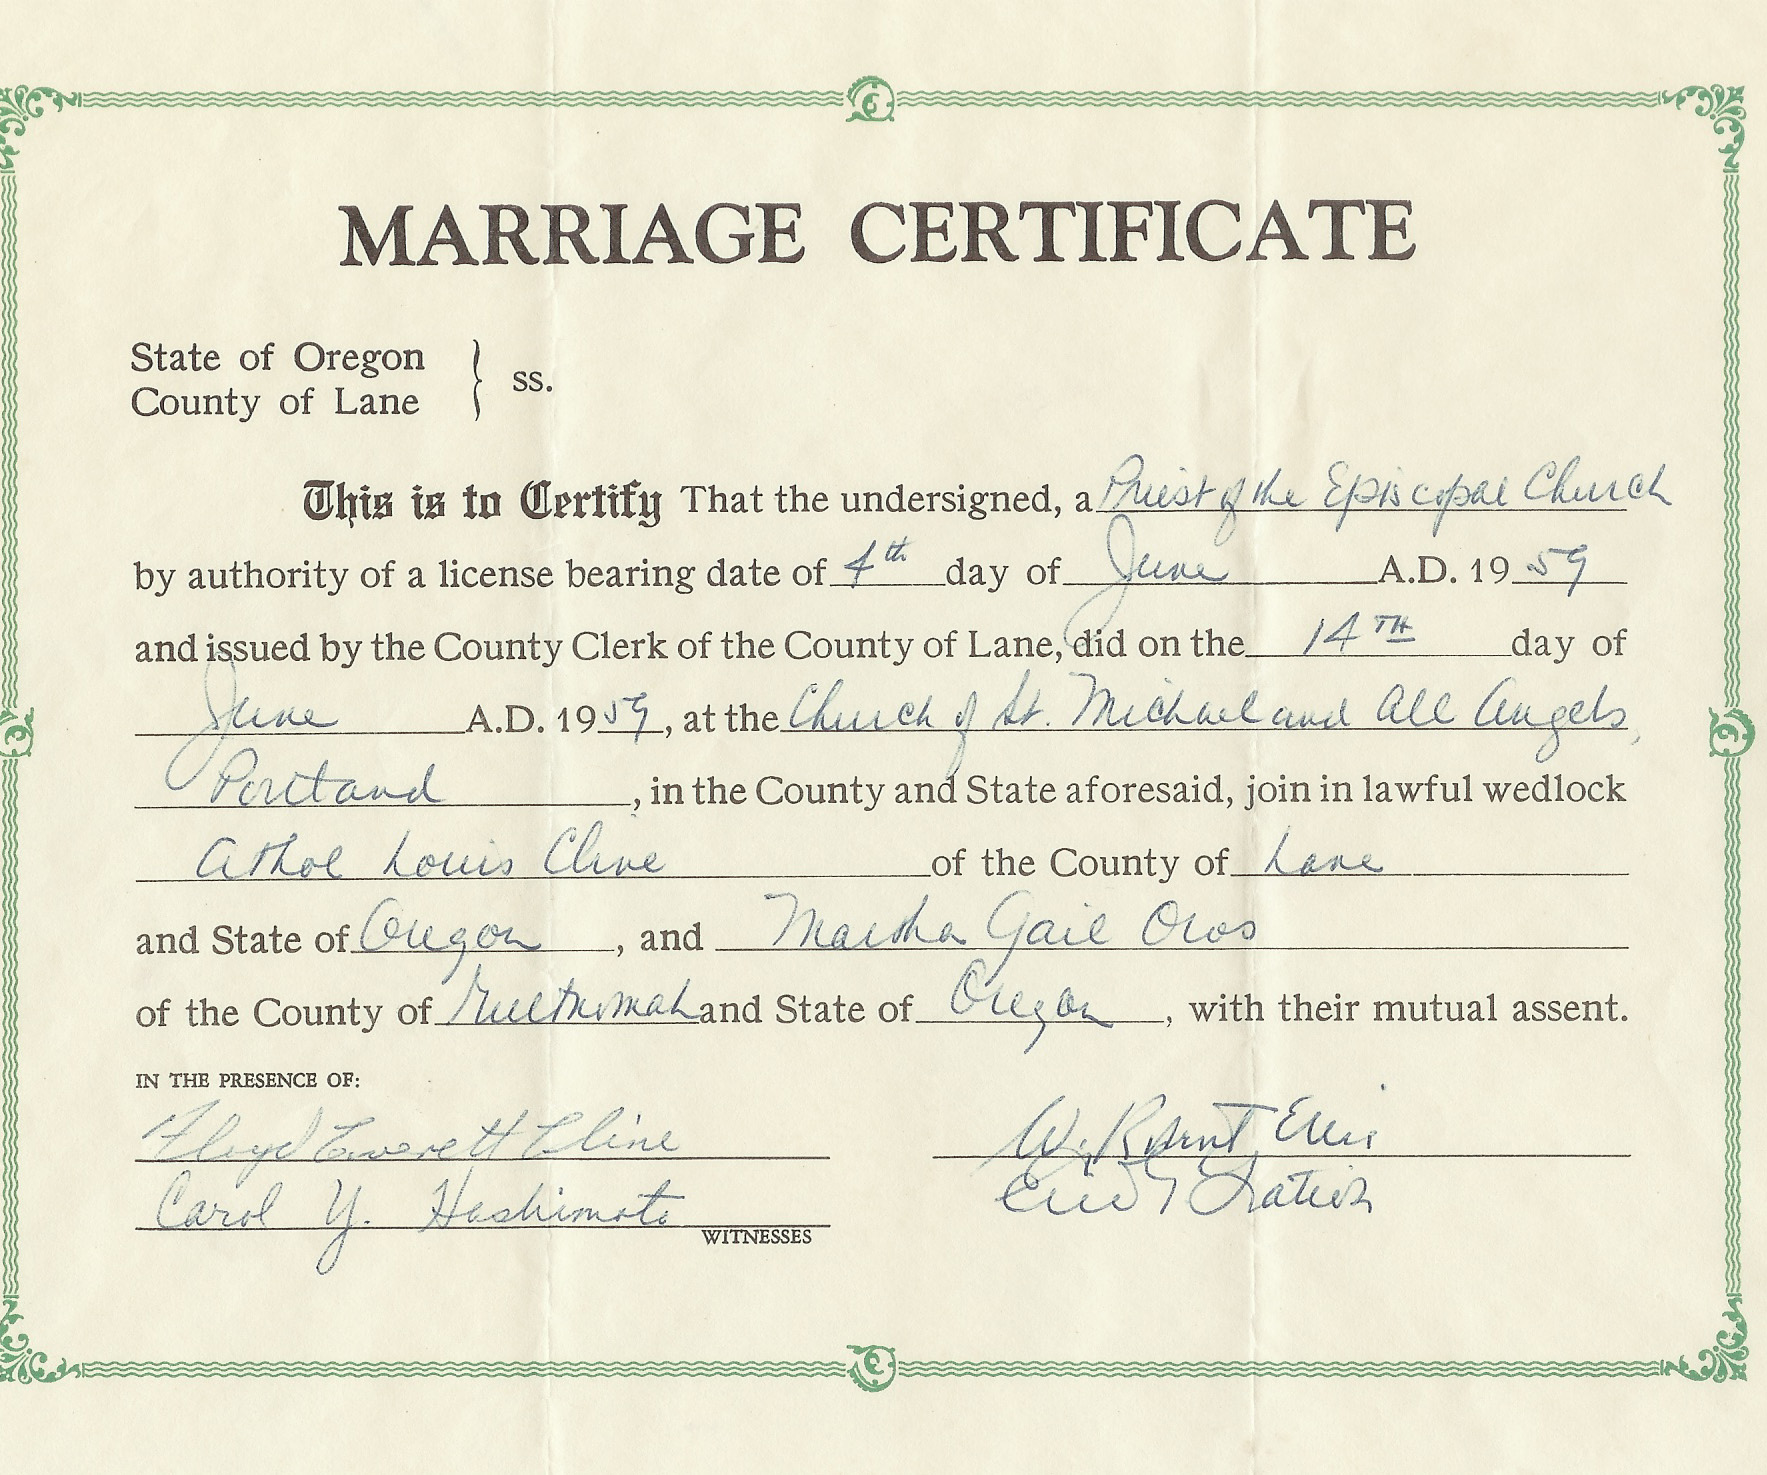 MARRIAGE CERTIFICATE
State of Oregon
County of Lane } ss.
This is to Certify That the undersigned, a Priest of the Episcopal Church
by authority of a license bearing date of 4th day of June A.D. 1959
and issued by the County Clerk of the County of Lane, did on the 14TH day of
June A.D. 1959, at the Church of St. Michael and All Angels,
Portland, in the County and State aforesaid, join in lawful wedlock
Athol Louis Cline of the County of Lane
and State of Oregon, and Marsha Gail Oros
of the County of Multnomah and State of Oregon, with their mutual assent.
IN THE PRESENCE OF:
Floyd Everett Cline
W. Robert Ellis
Carol Y. Hashimoto
WITNESSES